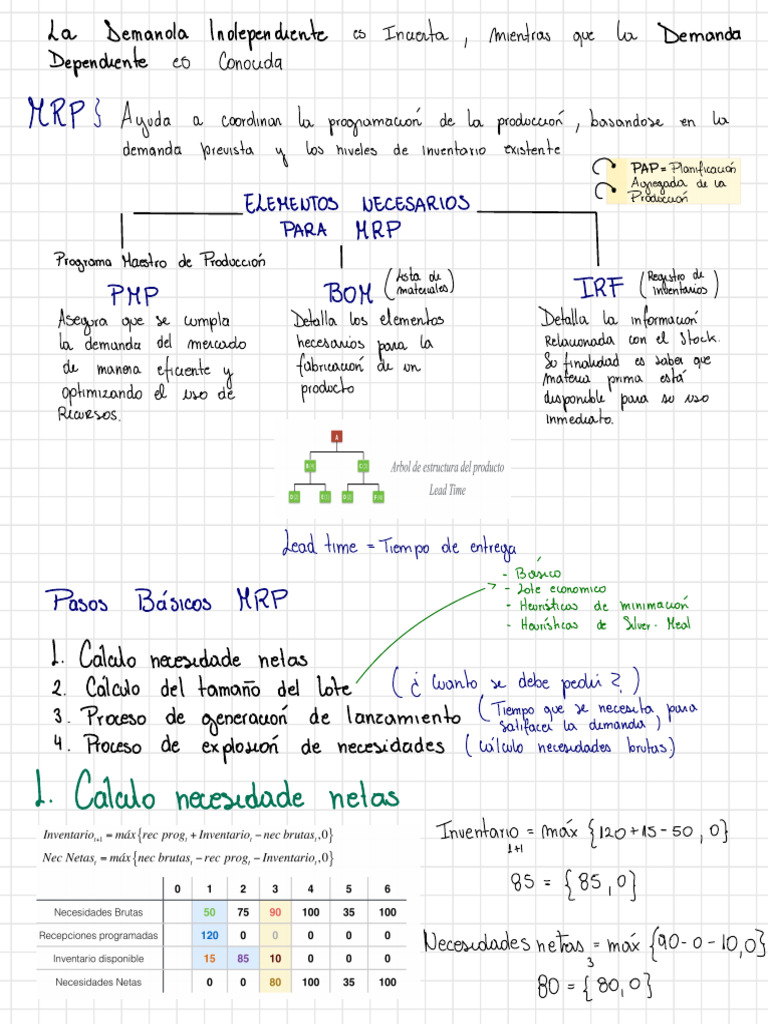 La Demanda Independiente es Incierta, mientras que la Demanda
Dependiente es Conocida
MRP} Ayuda a coordinar la programación de la producción, basandose en la
demanda prevista y los niveles de inventario existente
PAP = Planificación
Agregada de la
Producción
ELEMENTOS NECESARIOS
PARA MRP
Programa Maestro de Producción
PMP
Asegura que se cumpla
la demanda del mercado
de manera eficiente y
optimizando el uso de
Recursos.
BOM (Lista de
materiales)
Detalla los elementos
necesarios para la
fabricación de un
producto
IRF (Registro de
inventarios)
Detalla la información
Relacionada con el Stock.
Su finalidad es saber que
materia prima está
disponible para su uso
inmediato.
A
Arbol de estructura del producto
Lead Time
Lead time = Tiempo de entrega
- Básico
- Lote economico
- Heurísticas de minimación
- Heurísticas de Silver-Meal
Pasos Básicos MRP
1. Cálculo necesidade netas
2. Cálculo del tamaño del lote (¿Cuanto se debe pedir?)
3. Proceso de generación de lanzamiento (Tiempo que se necesita para
satisfacer la demanda)
4. Proceso de explosión de necesidades (Cálculo necesidades brutas)
1. Cálculo necesidade netas
Inventario t+1 = máx{rec prog t + Inventario t − nec brutas t, 0}
Nec Netas t = máx{nec brutas t − rec prog t − Inventario t, 0}
0 1 2 3 4 5 6
Necesidades Brutas 50 75 90 100 35 100
Recepciones programadas 120 0 0 0 0 0
Inventario disponible 15 85 10 0 0 0
Necesidades Netas 0 0 80 100 35 100
Inventario 1+1 = máx {120+15-50, 0}
85 = {85, 0}
Necesidades netas 3 = máx {90-0-10, 0}
80 = {80, 0}